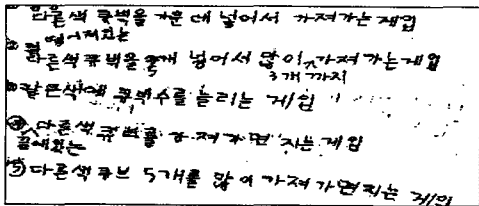 ① 다른색 큐빅을 가운데 넣어서 가져가는 게임
② 떨어져있는
다른색 큐빅을 2개 넣어서 많이 가져가는 게임
3개 까지
③ 같은색에 큐빅수를 늘리는 게임
④ 다른색 큐브를 가져가면 지는 게임
끝에있는
⑤ 다른색 큐브 5개를 많이 가져가면 지는 게임